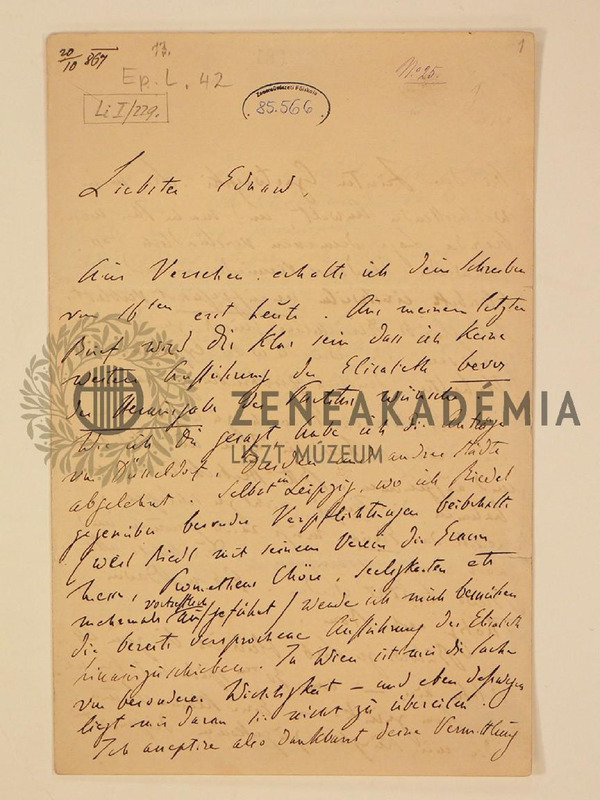 20/10 867
13.
Ep. L. 42
Li I/229.
85.566
No 25.
1
Liebster Eduard,
Aus Versehen erhalte ich dein Schreiben
vom 16ten erst heute. Aus meinem letzten
Brief wird dir klar sein dass ich keine
weitere Aufführung der Elisabeth bevor
der Herausgabe der Partitur wünsche.
ZENEAKADÉMIA
LISZT MÚZEUM
Wie ich dir gesagt habe ich die Anträge
von Düsseldorf, Dresden und andre Städte
abgelehnt. Selbst in Leipzig, wo ich Riedel
gegenüber besondre Verpflichtungen beibehalte
(weil Riedl mit seinem Verein die Graner
Messe, Prometheus Chöre, Seligkeiten etc
mehrmals vortrefflich aufgeführt) werde ich mich bemühen
die bereits versprochene Aufführung der Elisabeth
hinauszuschieben. In Wien ist mir die Sache
von besonderer Wichtigkeit – und eben deswegen
liegt mir daran sie nicht zu übereilen.
Ich acceptire also dankbarst deine Vermittlung